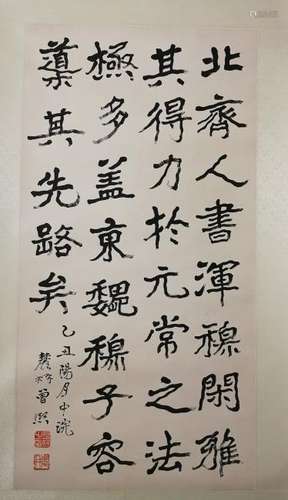 北齊人書渾穆閑雅
其得力於元常之法
極多蓋東魏穆子容
其先路矣
乙丑陽月中浣
農髯曾熙